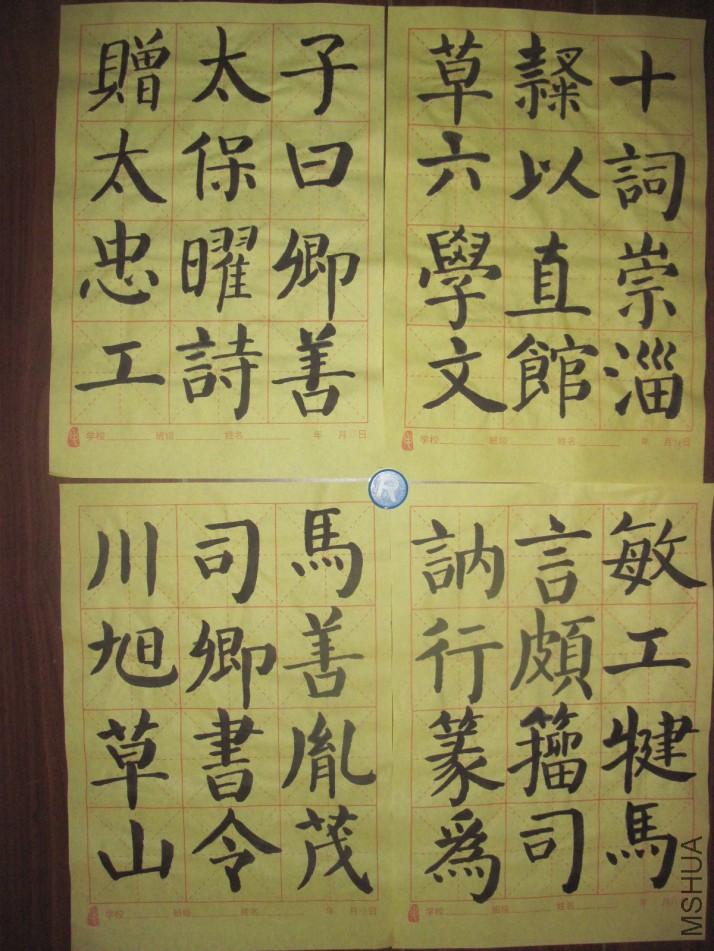 贈太子
太保曰
忠曜卿
工詩善
学校 班级 姓名 年 月 日
草隸十
六以詞
學直崇
文館淄
学校 班级 姓名 年 月 日
川司馬
旭卿善
草書胤
山令茂
学校 班级 姓名 年 月 日
訥言敏
行頗工
篆籀犍
爲司馬
学校 班级 姓名 年 月
R
MSHUA